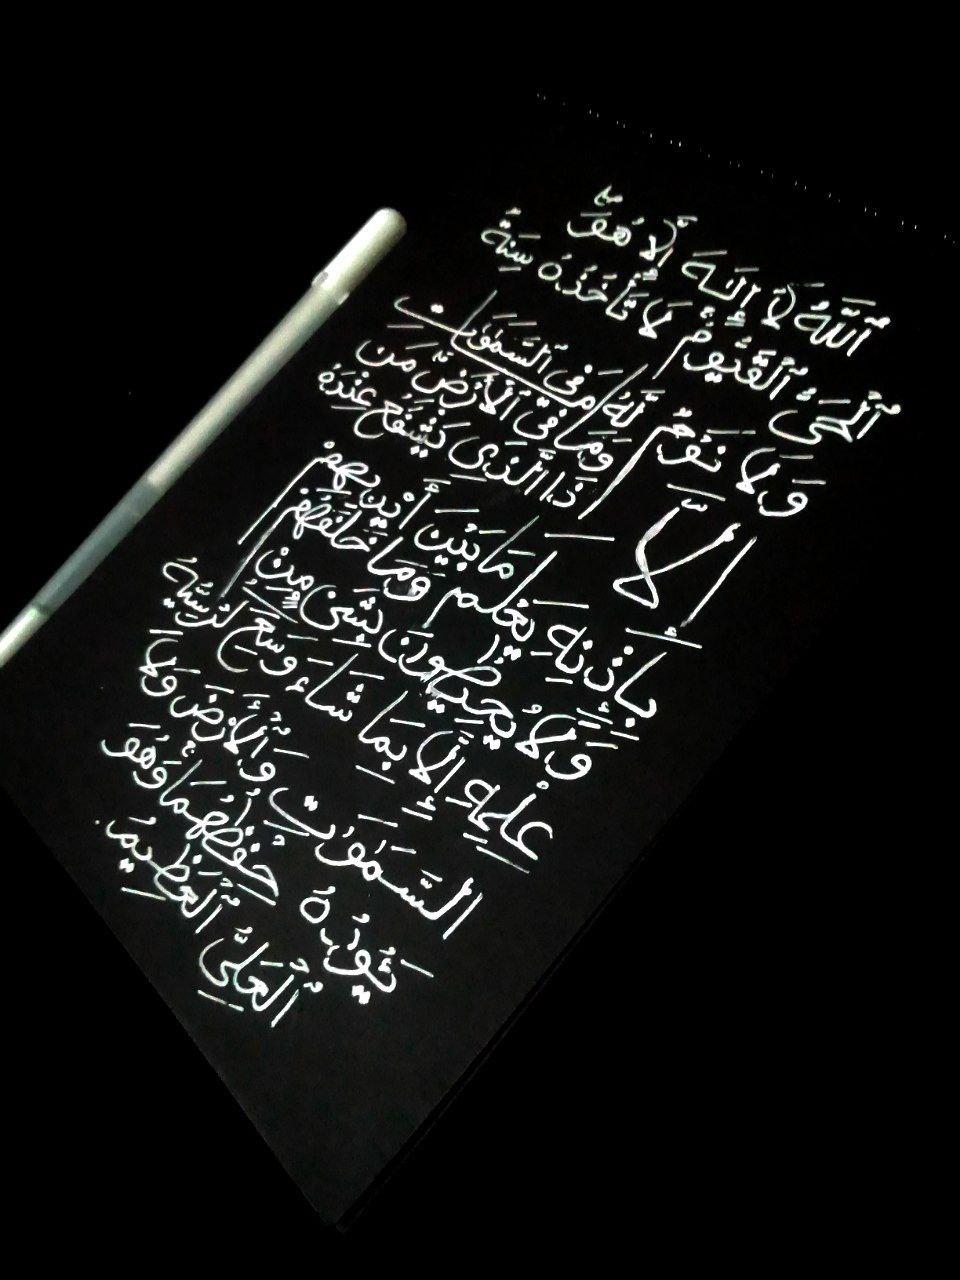 ٱللَّهُ لَآ إِلَٰهَ إِلَّا هُوَ
ٱلْحَىُّ ٱلْقَيُّومُ لَا تَأْخُذُهُۥ سِنَةٌ
وَلَا نَوْمٌ لَّهُۥ مَا فِى ٱلسَّمَٰوَٰتِ
وَمَا فِى ٱلْأَرْضِ مَن
ذَا ٱلَّذِى يَشْفَعُ عِندَهُۥٓ
إِلَّا
بِإِذْنِهِۦ يَعْلَمُ مَا بَيْنَ أَيْدِيهِمْ
وَمَا خَلْفَهُمْ
وَلَا يُحِيطُونَ بِشَىْءٍ مِّنْ
عِلْمِهِۦٓ إِلَّا بِمَا شَآءَ وَسِعَ كُرْسِيُّهُ
ٱلسَّمَٰوَٰتِ وَٱلْأَرْضَ وَلَا
يَـُٔودُهُۥ حِفْظُهُمَا وَهُوَ
ٱلْعَلِىُّ ٱلْعَظِيمُ